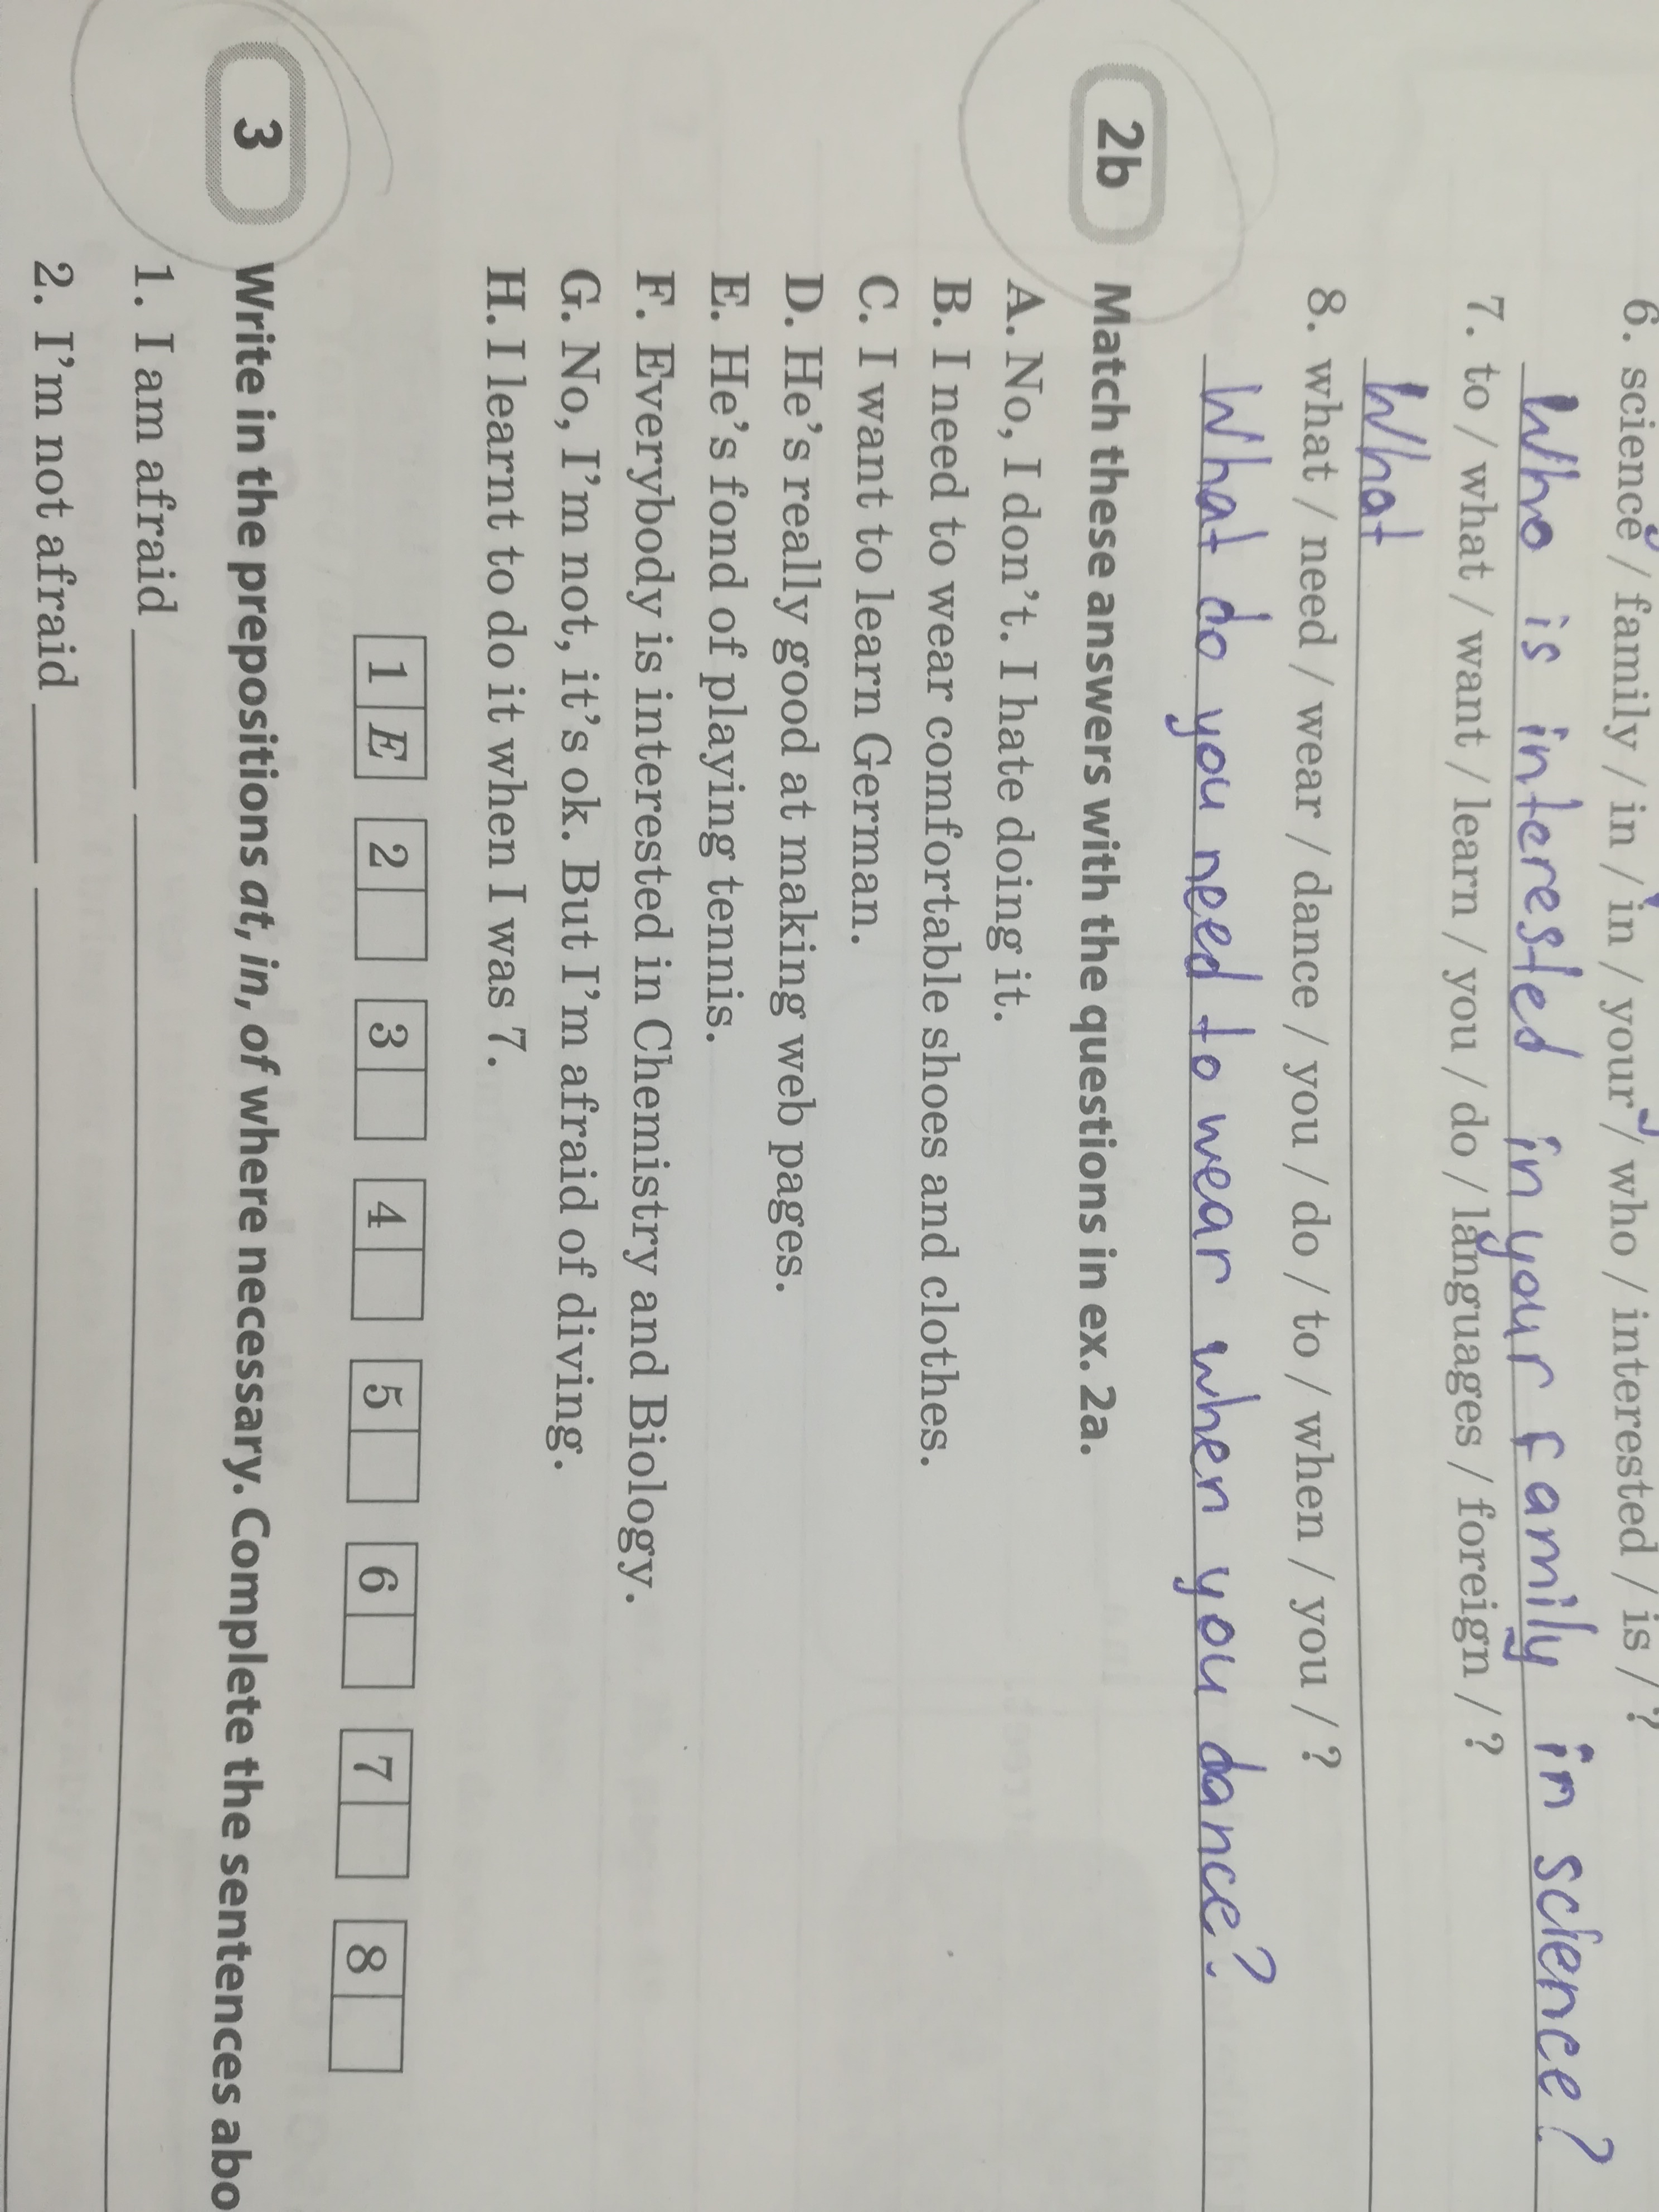 6. science / family / in / in / your / who / interested / is / ?
Who is interested in your family in science?
7. to / what / want / learn / you / do / languages / foreign / ?
What
8. what / need / wear / dance / you / do / to / when / you / ?
What do you need to wear when you dance?
2b Match these answers with the questions in ex. 2a.
A. No, I don't. I hate doing it.
B. I need to wear comfortable shoes and clothes.
C. I want to learn German.
D. He's really good at making web pages.
E. He's fond of playing tennis.
F. Everybody is interested in Chemistry and Biology.
G. No, I'm not, it's ok. But I'm afraid of diving.
H. I learnt to do it when I was 7.
1 E 2 3 4 5 6 7 8
3 Write in the prepositions at, in, of where necessary. Complete the sentences abo
1. I am afraid
2. I'm not afraid